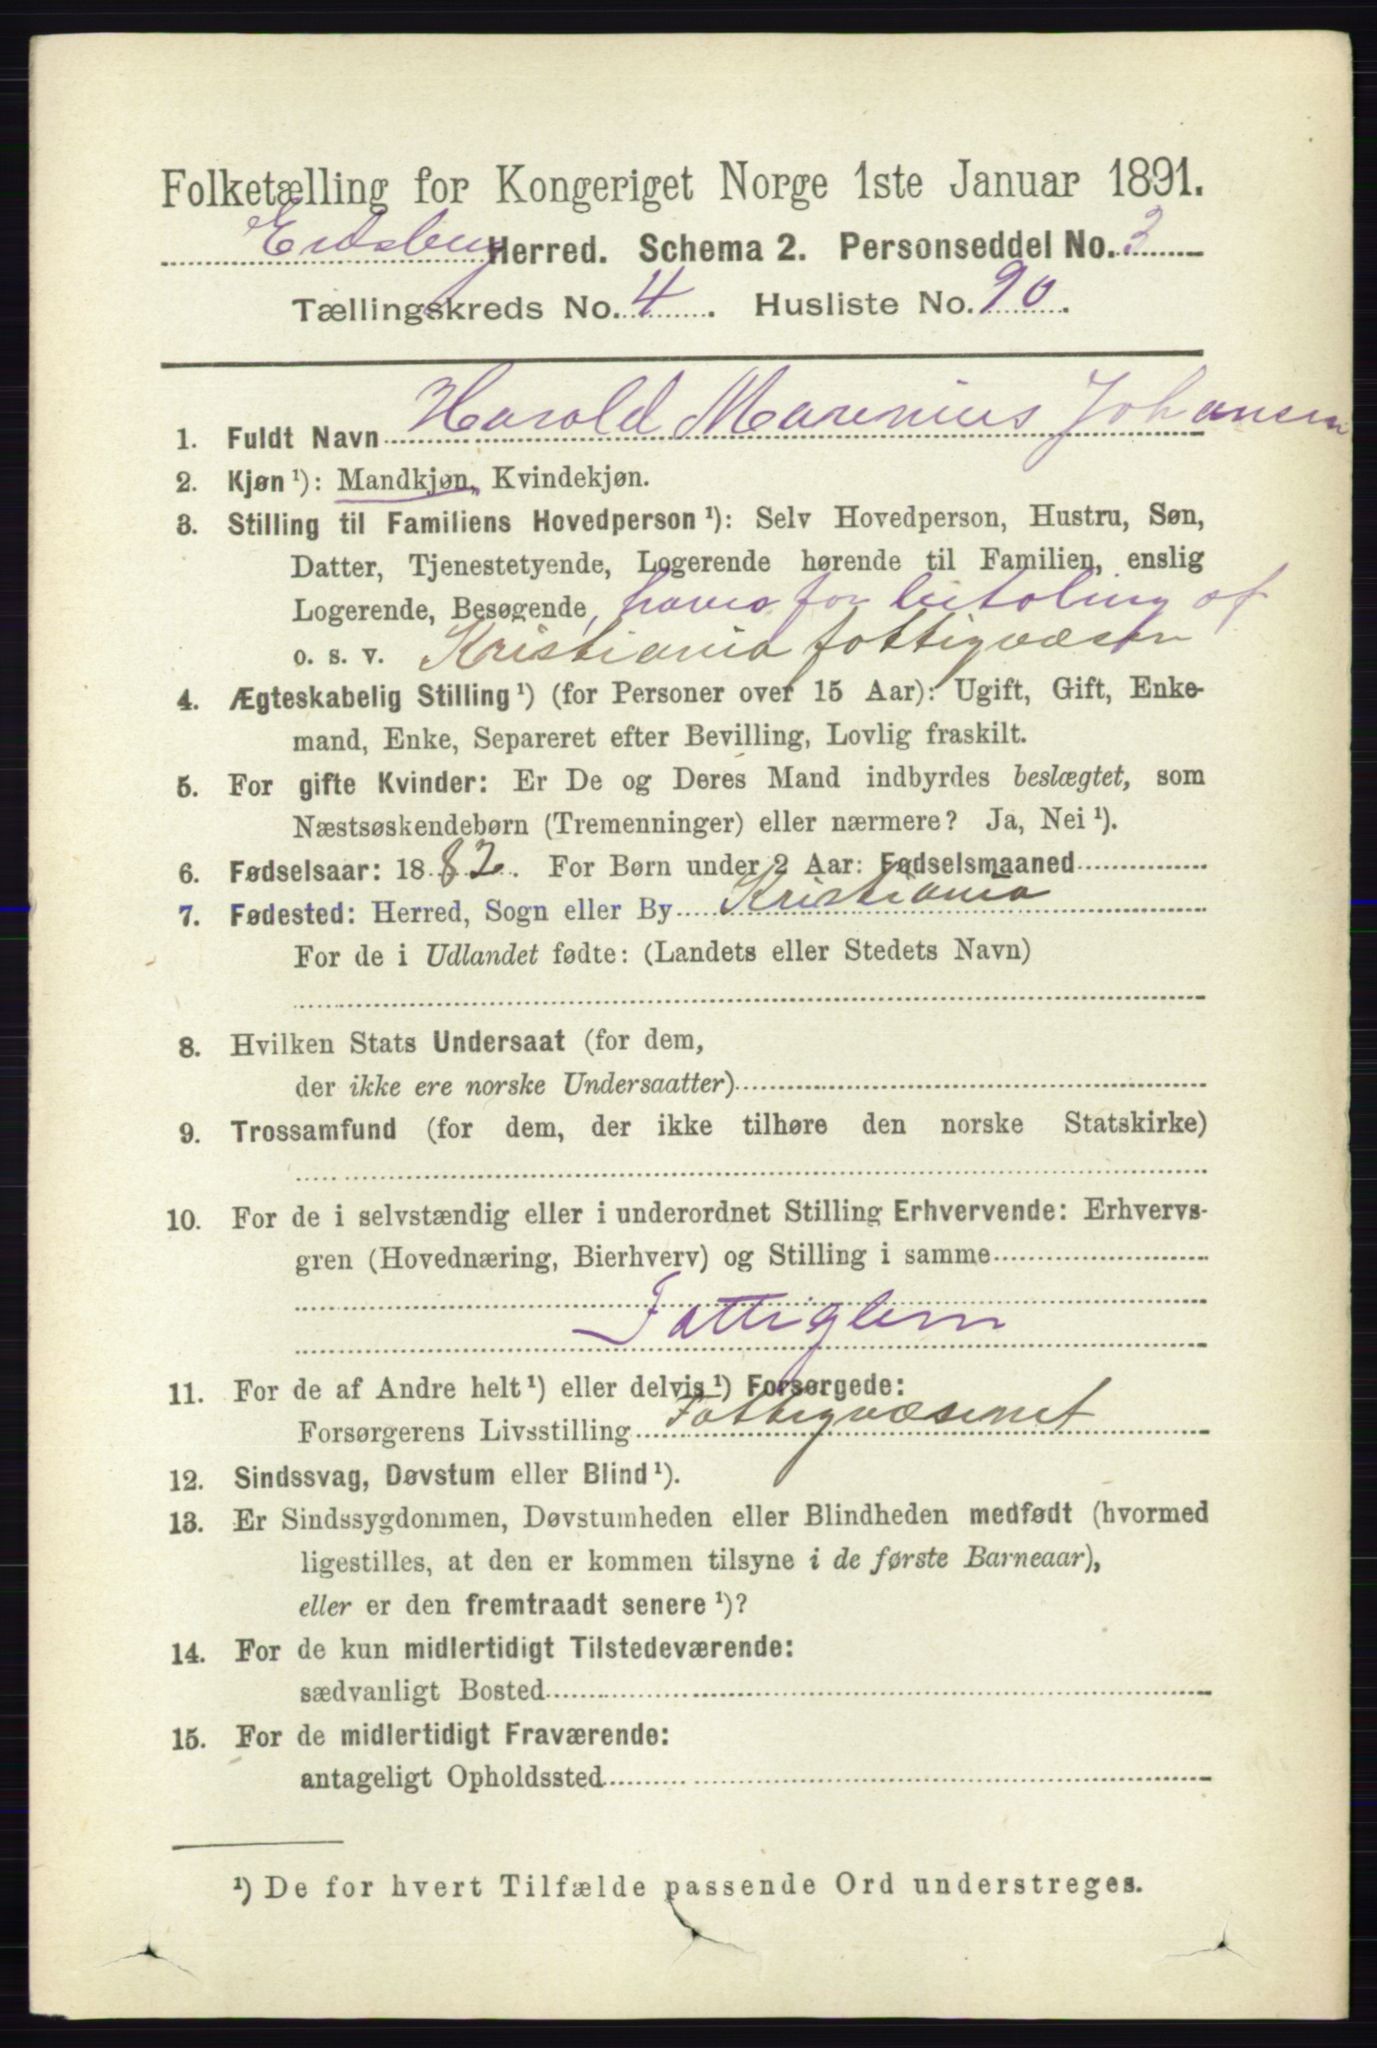 Folketælling for Kongeriget Norge 1ste Januar 1891.
Eidsberg Herred. Schema 2. Personseddel No. 3
Tællingskreds No. 4. Husliste No. 90.
1. Fuldt Navn Harald Marenius Johansen
2. Kjøn ¹): Mandkjøn, Kvindekjøn.
3. Stilling til Familiens Hovedperson ¹): Selv Hovedperson, Hustru, Søn,
Datter, Tjenestetyende, Logerende hørende til Familien, enslig
Logerende, Besøgende, haves for betaling af
o. s. v. Kristiania fattigvæsen
4. Ægteskabelig Stilling ¹) (for Personer over 15 Aar): Ugift, Gift, Enke-
mand, Enke, Separeret efter Bevilling, Lovlig fraskilt.
5. For gifte Kvinder: Er De og Deres Mand indbyrdes beslægtet, som
Næstsøskendebørn (Tremenninger) eller nærmere? Ja, Nei ¹).
6. Fødselsaar: 1882. For Børn under 2 Aar: Fødselsmaaned
7. Fødested: Herred, Sogn eller By Kristiania
For de i Udlandet fødte: (Landets eller Stedets Navn)
8. Hvilken Stats Undersaat (for dem,
der ikke ere norske Undersaatter)
9. Trossamfund (for dem, der ikke tilhøre den norske Statskirke)
10. For de i selvstændig eller i underordnet Stilling Erhvervende: Erhvervs-
gren (Hovednæring, Bierhverv) og Stilling i samme
Fattiglem
11. For de af Andre helt ¹) eller delvis ¹) Forsørgede:
Forsørgerens Livsstilling Fattigvæsenet
12. Sindssvag, Døvstum eller Blind ¹).
13. Er Sindssygdommen, Døvstumheden eller Blindheden medfødt (hvormed
ligestilles, at den er kommen tilsyne i de første Barneaar),
eller er den fremtraadt senere ¹)?
14. For de kun midlertidigt Tilstedeværende:
sædvanligt Bosted
15. For de midlertidigt Fraværende:
antageligt Opholdssted
¹) De for hvert Tilfælde passende Ord understreges.